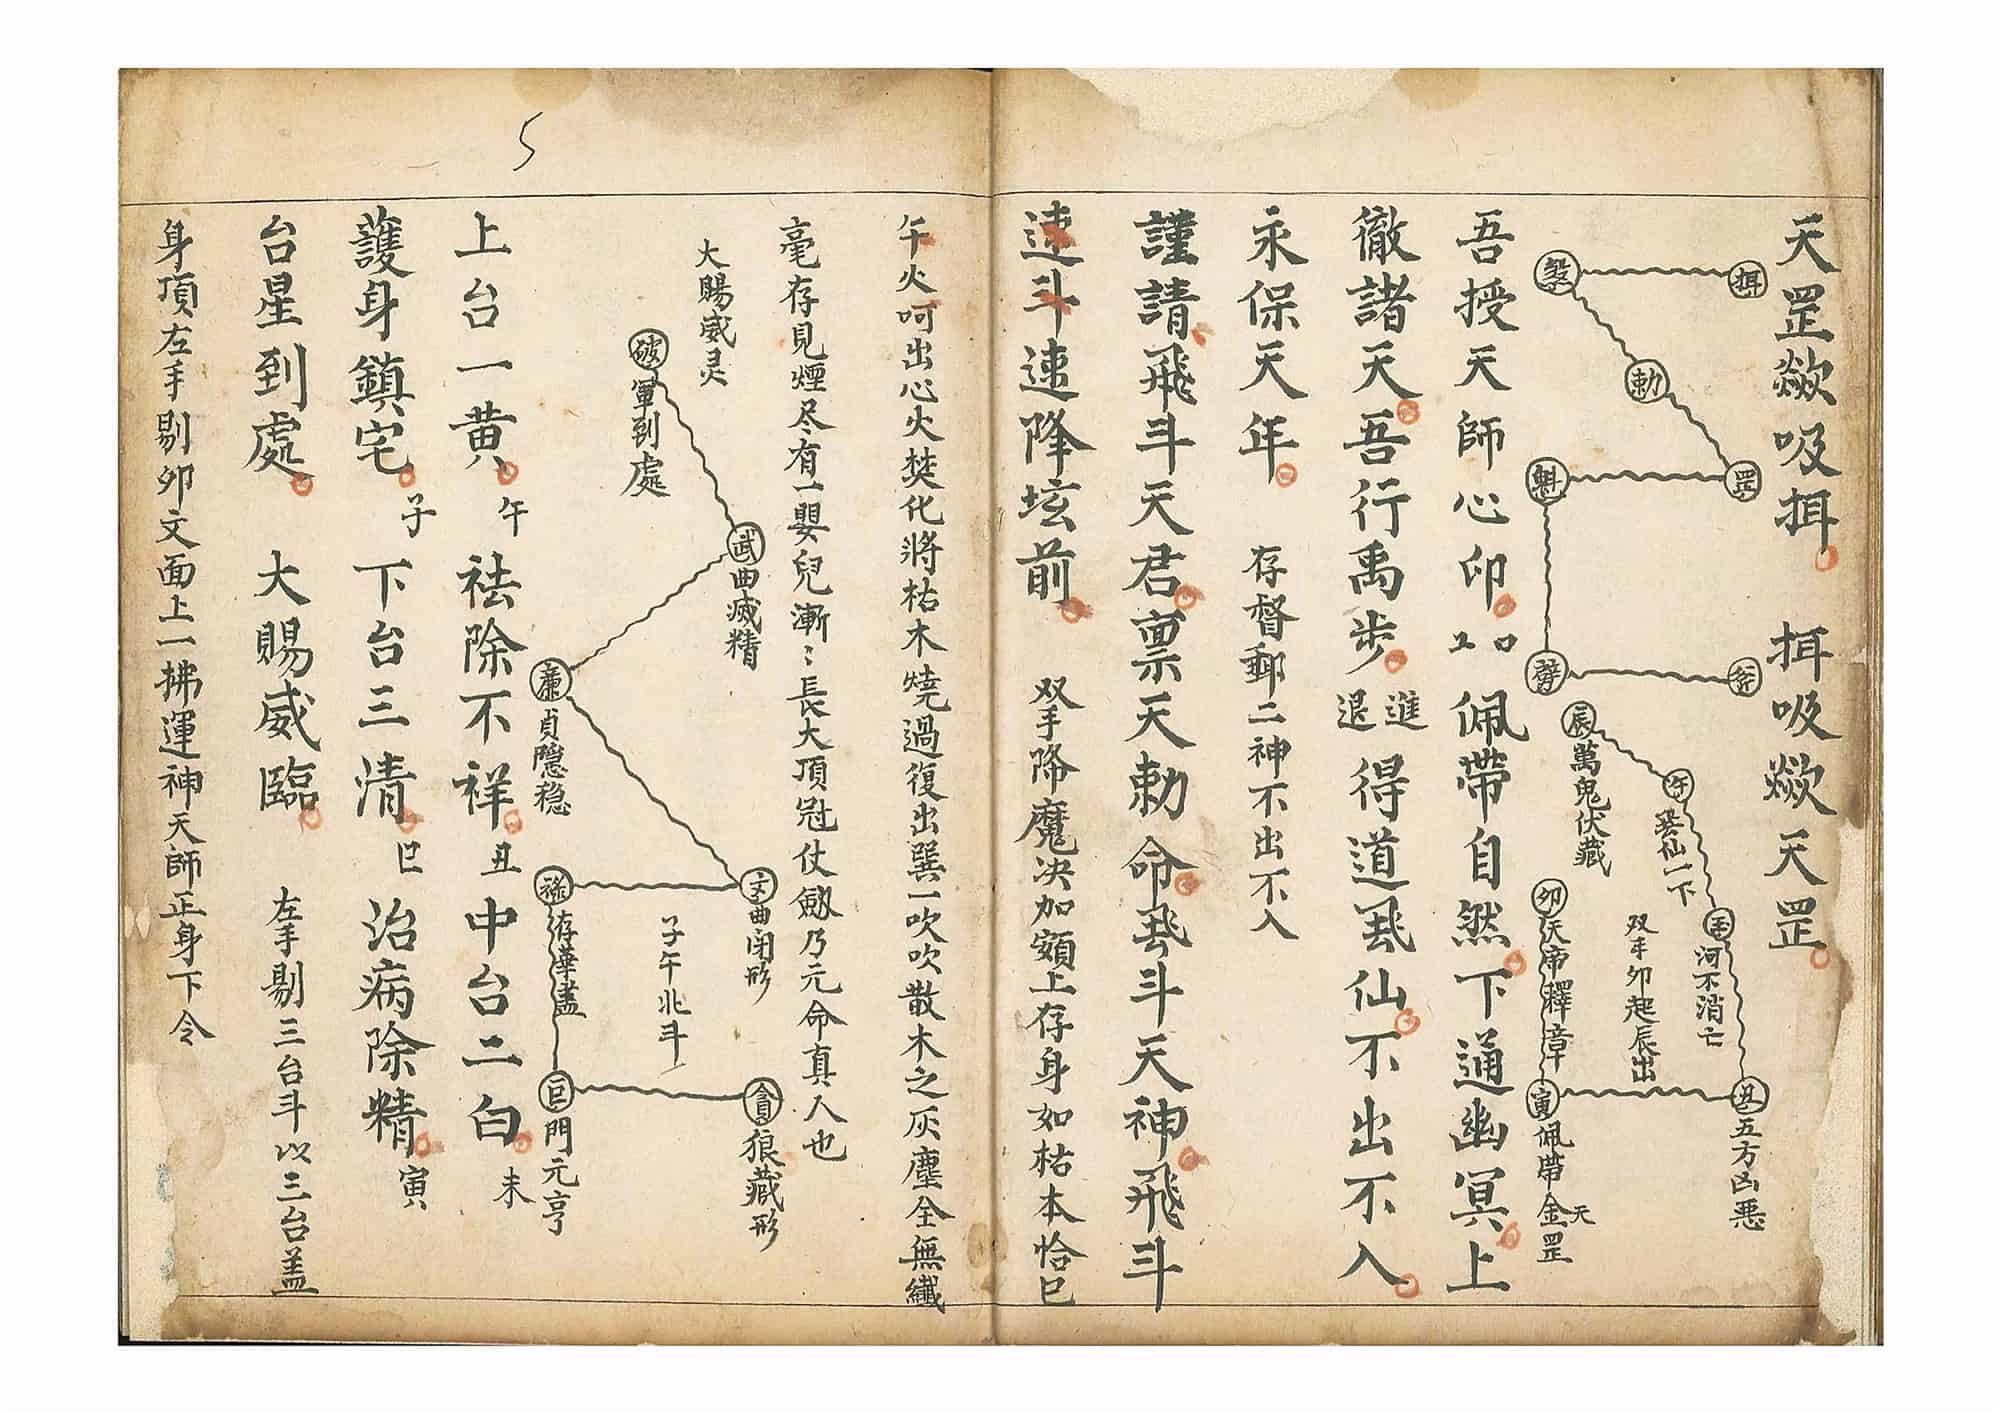 天罡歘吸挕 挕吸歘天罡
挕
勅
罡
魁
辰 萬鬼伏藏
午 一下
河不消亡
丑 五方凶悪
寅 佩帶金罡
天
卯 天帝釋章
双手卯起辰出
吾授天師心印 佩帶自然下通幽冥上
徹諸天吾行禹步 進退 得道飛仙不出不入
永保天年 存督郵二神不出不入
謹請飛斗天君禀天勅命飛斗天神飛斗
速斗速降坛前 双手降魔决加額上存身如枯本恰巳
午火呵出心火焚化將枯木燒過復出巽一吹吹散木之灰塵全無纖
毫存見煙尽有一嬰兒漸〻長大頂冠仗劔乃元命真人也
大賜威灵
破軍到處
武曲滅精
廉貞隱稳
文曲闭形
祿存華盖
巨門元亨
貪狼藏形
子午北斗
上台一黄 午 祛除不祥 丑 中台二白 未
護身鎮宅 子 下台三清 巳 治病除精 寅
台星到處 大賜威臨 左手剔三台斗以三台盖
身頂左手剔卯文面上一拂運神天師正身下令
5